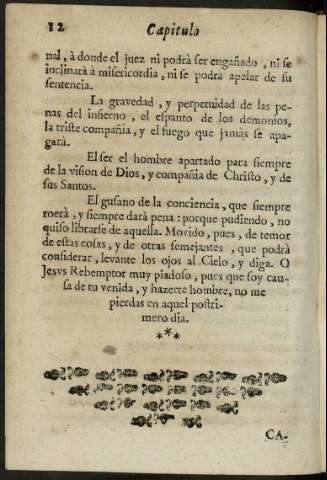 12 Capitulo
nal, à donde el juez ni podrà ser engañado, ni se
inclinarà à misericordia, ni se podrà apelar de su
sentencia.
La gravedad, y perpetuidad de las pe-
nas del infierno, el espanto de los demonios,
la triste compañia, y el fuego que jamàs se apa-
garà.
El ser el hombre apartado para siempre
de la vision de Dios, y compañia de Christo, y de
sus Santos.
El gusano de la conciencia, que siempre
roerà, y siempre darà pena: porque pudiendo, no
quiso librarse de aquella. Movido, pues, de temor
de estas cosas, y de otras semejantes, que podrà
considerar, levante los ojos al Cielo, y diga. O
Jesvs Redemptor muy piadoso, pues que soy cau-
sa de tu venida, y hazerte hombre, no me
pierdas en aquel postri-
mero dia.
***
CA-